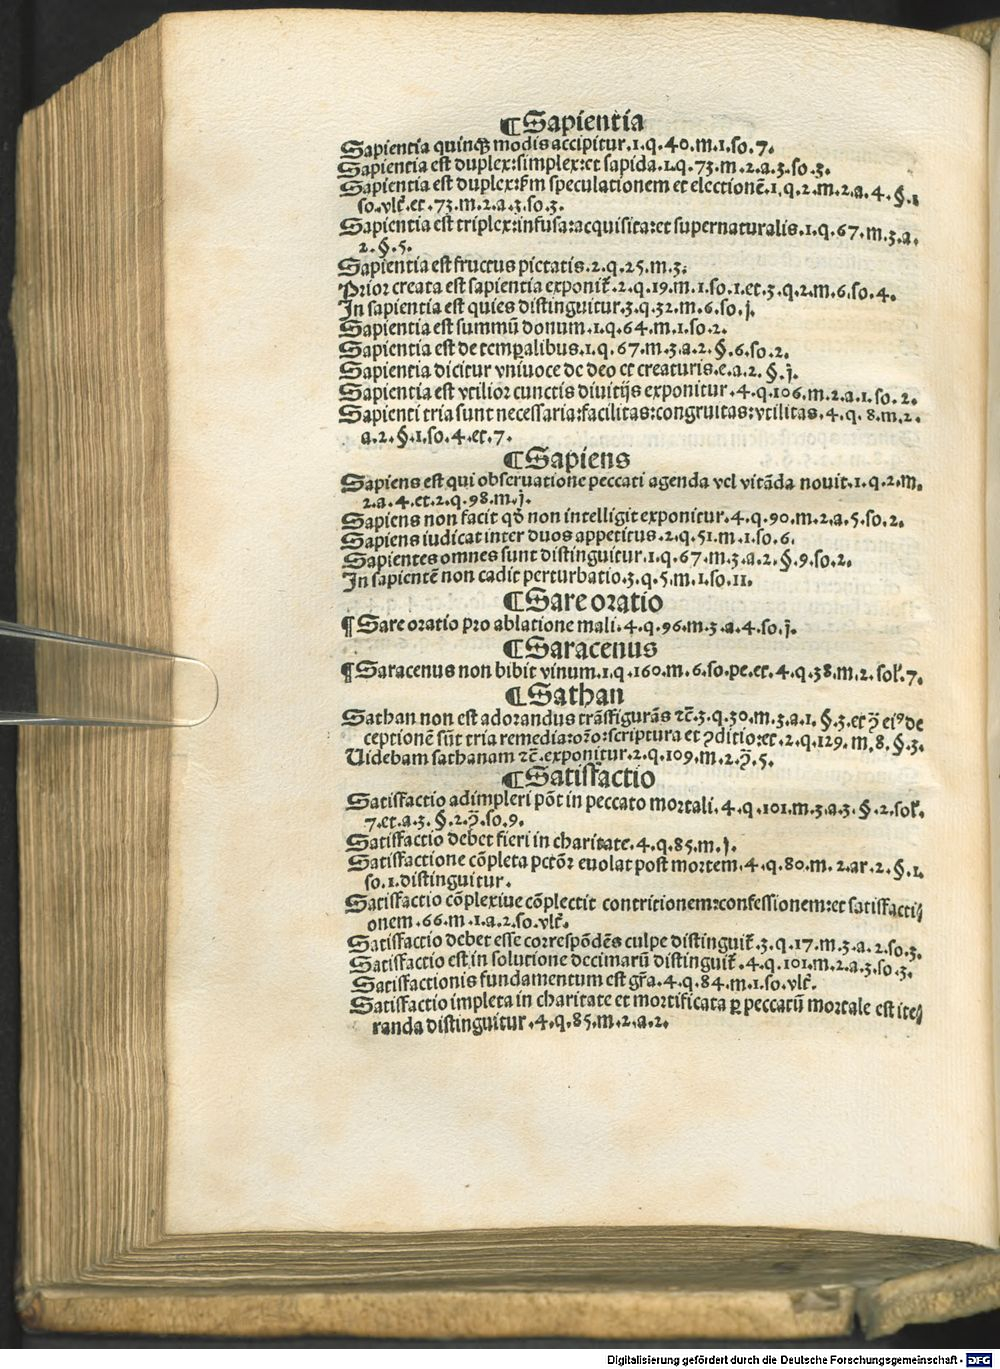 ¶Sapientia
Sapientia quinqꝫ modis accipitur.1.q.40.m.1.so.7.
Sapientia est duplex:simplex:et sapida.1.q.73.m.2.a.3.so.3.
Sapientia est duplex:ẜm speculationem et electionē.1.q.2.m.2.a.4.§.1
so.vlt̄.et.73.m.2.a.3.so.3.
Sapientia est triplex:infusa:acquisita:et supernaturalis.1.q.67.m.3.a.
2.§.5.
Sapientia est fructus pietatis.2.q.25.m.3.
Prior creata est sapientia exponit̄.2.q.19.m.1.so.1.et.3.q.2.m.6.so.4.
In sapientia est quies distinguitur.3.q.32.m.6.so.j.
Sapientia est summū donum.1.q.64.m.1.so.2.
Sapientia est de temꝑalibus.1.q.67.m.3.a.2.§.6.so.2.
Sapientia dicitur vniuoce de deo et creaturis.e.a.2.§.j.
Sapientia est vtilior cunctis diuitijs exponitur.4.q.106.m.2.a.1.so.2.
Sapienti tria sunt necessaria:facilitas:congruitas:vtilitas.4.q.8.m.2.
a.2.§.1.so.4.et.7.
¶Sapiens
Sapiens est qui obseruatione peccati agenda vel vitāda nouit.1.q.2.m.
2.a.4.et.2.q.98.m.j.
Sapiens non facit qđ non intelligit exponitur.4.q.90.m.2.a.5.so.2.
Sapiens iudicat inter duos appetitus.2.q.51.m.1.so.6.
Sapientes omnes sunt distinguitur.1.q.67.m.3.a.2.§.9.so.2.
In sapientē non cadit perturbatio.3.q.5.m.1.so.11.
¶Sare oratio
¶Sare oratio pro ablatione mali.4.q.96.m.3.a.4.so.j.
¶Saracenus
¶Saracenus non bibit vinum.1.q.160.m.6.so.pe.et.4.q.38.m.2.sol̄.7.
¶Sathan
Sathan non est adorandus trāsfigurās ⁊c̄.3.q.30.m.3.a.1.§.3.et ꝙ̄ eiꝰ de
ceptionē sūt tria remedia:orō:scriptura et ꝯditio:et.2.q.129.m.8.§.3.
Uidebam sathanam ⁊c̄.exponitur.2.q.109.m.2.ꝙ̄.5.
¶Satisfactio
Satisfactio adimpleri pōt in peccato mortali.4.q.101.m.3.a.3.§.2.sol̄.
7.et.a.3.§.2.ꝙ̄.so.9.
Satisfactio debet fieri in charitate.4.q.85.m.j.
Satisfactione cōpleta pctōr̄ euolat post mortem.4.q.80.m.2.ar.2.§.1.
so.1.distinguitur.
Satisfactio cōplexiue cōplectit contritionem:confessionem:et satisfacti⸗
onem.66.m.1.a.2.so.vlt̄.
Satisfactio debet esse correspōdēs culpe distinguit̄.3.q.17.m.3.a.2.so.3.
Satisfactio est in solutione decimarū distinguit̄.4.q.101.m.2.a.3.so.3.
Satisfactionis fundamentum est gr̄a.4.q.84.m.1.so.vlt̄.
Satisfactio impleta in charitate et mortificata ꝑ peccatū mortale est ite⸗
randa distinguitur.4.q.85.m.2.a.2.
Digitalisierung gefördert durch die Deutsche Forschungsgemeinschaft - DFG